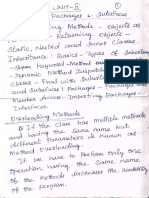 UNIT-II ①
Packages & Interfaces
Overloading Methods - Objects as
Parameters - Returning Objects -
Static, Nested and Inner Classes.
Inheritance: Basics - Types of Inheritance
- Super Keyword - Method Overriding
- Dynamic Method Dispatch - Abstract
Classes - final with Inheritance. Packages
and Interfaces: Packages - Packages and
Member Access - Importing Packages -
Interfaces.
Overloading Methods
If the class has multiple methods
and having the same name but
different Parameters is known as
Method Overloading.
If we have to Perform only one
Operation, having the same name of
the methods increases the readability
of the program.